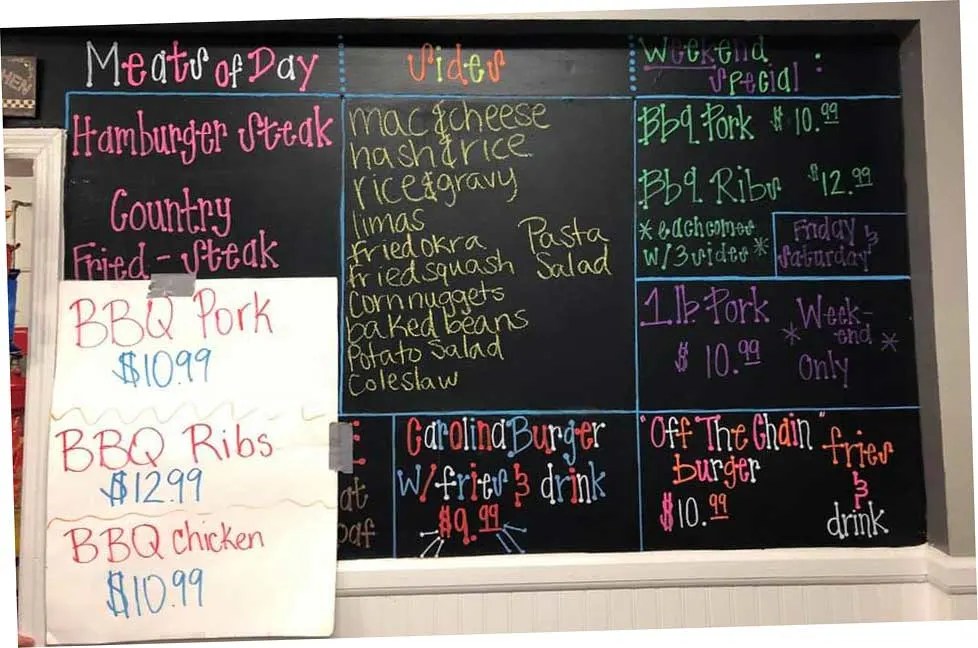 Meats of Day
Hamburger Steak
Country
Fried - Steak
BBQ Pork
$10.99
BBQ Ribs
$12.99
BBQ Chicken
$10.99
Sides
mac & cheese
hash & rice
rice & gravy
limas
fried okra
fried squash
Corn nuggets
baked beans
Potato Salad
Coleslaw
Pasta
Salad
Weekend
Special :
Bbq Pork $10.99
Bbq Ribs $12.99
*each comes
w/3 sides*
Friday &
Saturday
1 lb Pork
$10.99
*Week-
end*
Only
Carolina Burger
w/fries & drink
$9.99
"Off The Chain"
burger
$10.99
fries
&
drink